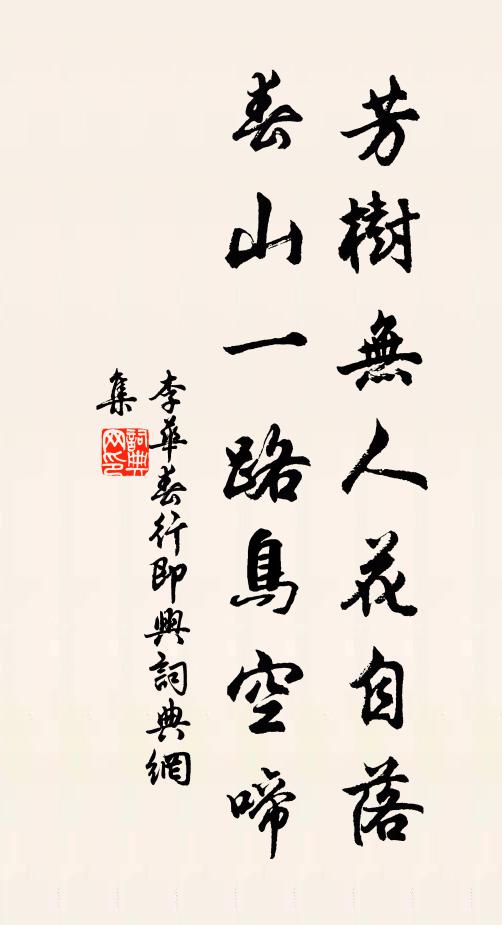 芳樹無人花自落
春山一路鳥空啼
李華春行即興詞典網
集
詞典
网印